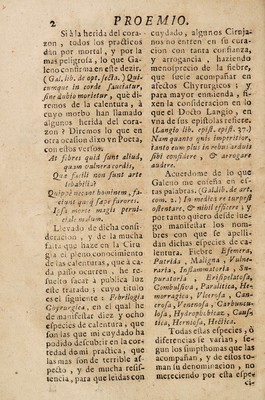 2 PROEMIO.
Si à la herida del cora-
zon, todos los practicos
dàn por mortal, y por la
mas peligrosa, lo que Ga-
leno confirma en este dezir.
(Gal. lib. de opt. secta.) Qui-
cumque in corde sauciatur,
sine dubio morietur, què di-
remos de la calentura, à
cuyo morbo han llamado
algunos herida del cora-
zon? Diremos lo que en
otra ocasion dixo vn Poeta,
con estos versos:
At febres quid sunt aliud,
quam vulnera cordis,
Quæ facili non sunt arte
Quippè necant hominem,
Ipsa morte magis
Llevado de dicha consi-
deracion, y de la mucha
falta que haze en la Ciru-
gia el pleno conocimiento
de las calenturas, què à ca-
da passo ocurren, he re-
suelto sacar à publica luz
este tratado; cuyo titulo
es el siguiente: Febrilogia
Chyrurgica, en el qual he
de manifestar diez y ocho
especies de calentura, que
son las que mi cuydado ha
podido descubrir en la cor-
tedad de mi practica, que
las mas son de terrible as-
pecto, y de mucha resis-
tencia, para que leidas con
cuydado, algunos Ciruja-
nos no entren en su cura-
cion con tanta confianza,
y arrogancia, haziendo
menosprecio de la fiebre,
que suele acompañar en
afectos Chyrurgicos; y
para mayor enmienda, fi-
xen la consideracion en lo
que el Docto Langio, en
vna de sus epistolas refiere:
(Langio lib. epist. epist. 37.)
Nam quanto quis imperitior,
tanto eum plus in rebus arduis
sibi confidere, & arrogare
audere.
Acuerdome de lo que
Galeno me enseña en es-
tas palabras. (Gal. lib. de art.
com. 2.) In medico re turpest
ostentare, & nihil efficere; y
por tanto quiero desde lue-
go manifestar los nom-
bres con que se apelli-
dan dichas especies de ca-
lentura. Fiebre Efemera,
Putrida, Maligna, Vulne-
raria, Inflammatoria, Su-
puratoria, Erisipelatosa,
Combustiva, Paralitica, He-
morragica, Vicerosa, Can-
crosa, Venenosa, Carbuncu-
losa, Hydrophobicae, Caus-
tica, Herniosa, Hectica.
Todas estas especies, ò
diferencias se varian, se-
gun los simpthomas que las
acompañan, y de estos to-
man su denominacion, no
mereciendo por esta espe-
ci-